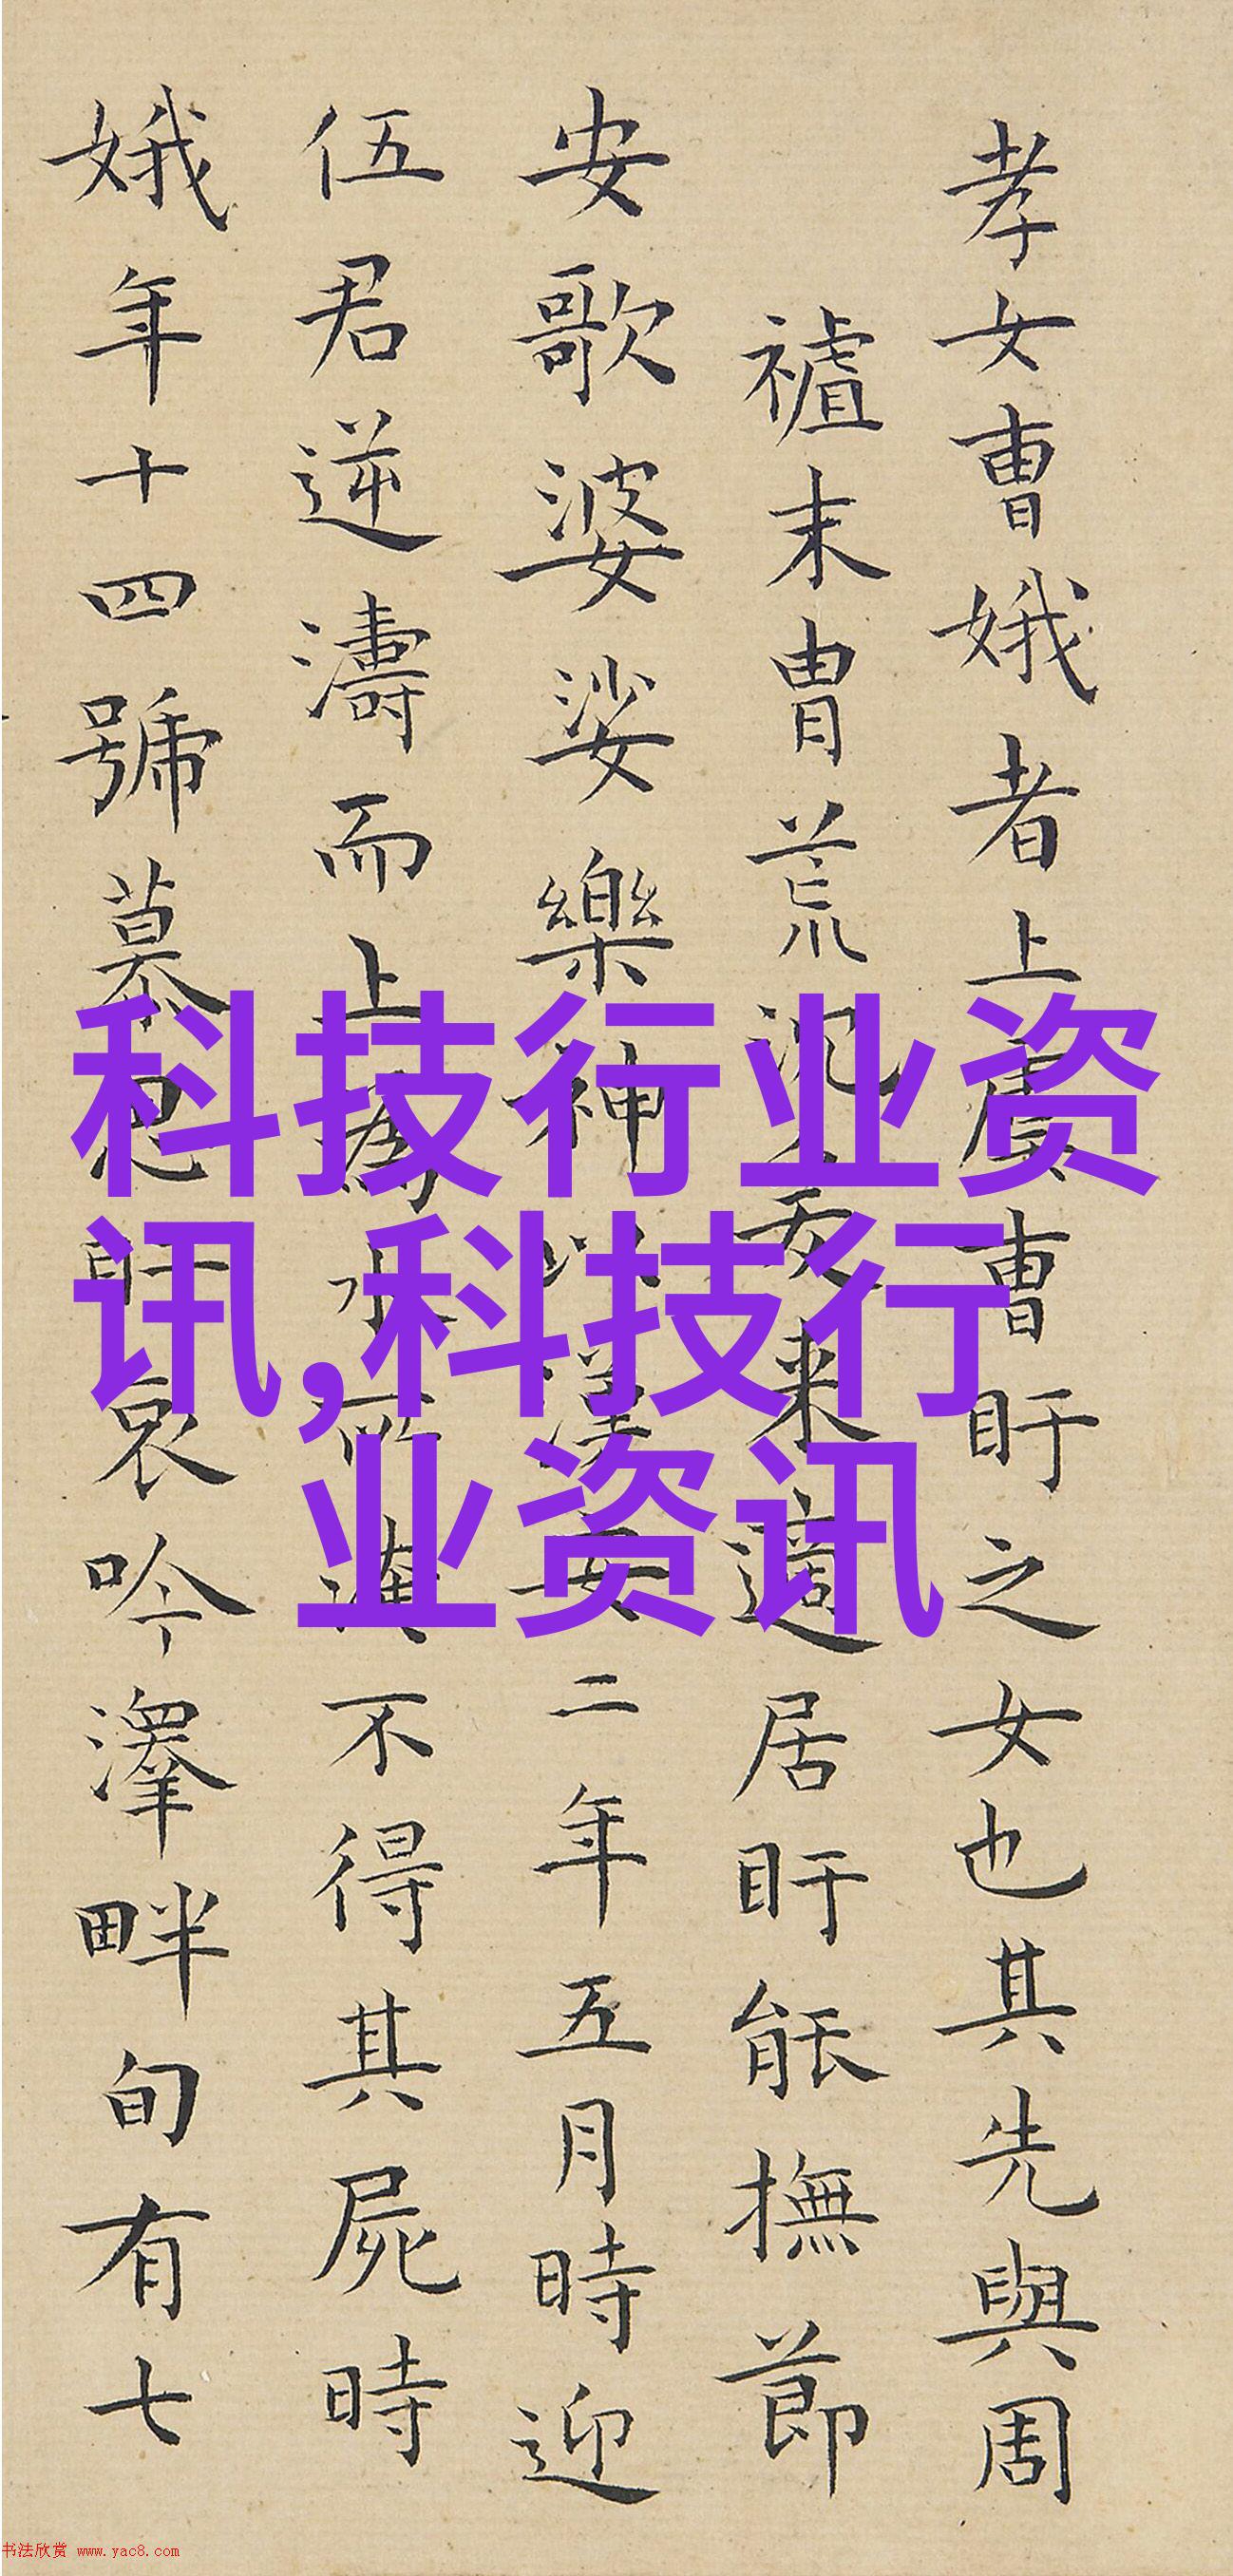 孝女曺娥者上虞曺盱之女也其先與周
禇末胄荒沉爰来適居盱能撫節
安歌婆娑樂神以漢安二年五月時迎
伍君逆濤而上為水所淹不得其屍時
娥年十四號慕思盱哀吟澤畔旬有七
科技行业资
讯,科技行
业资讯
书法欣赏 www.yac8.com